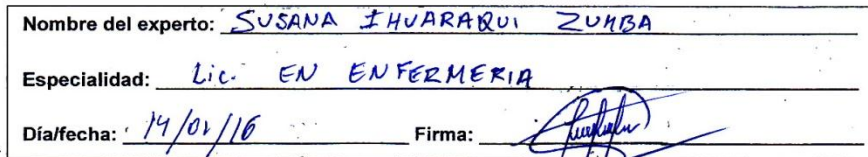 Nombre del experto: SUSANA IHUARAQUI ZUMBA
Especialidad: Lic. EN ENFERMERIA
Día/fecha: 14/01/16 Firma: